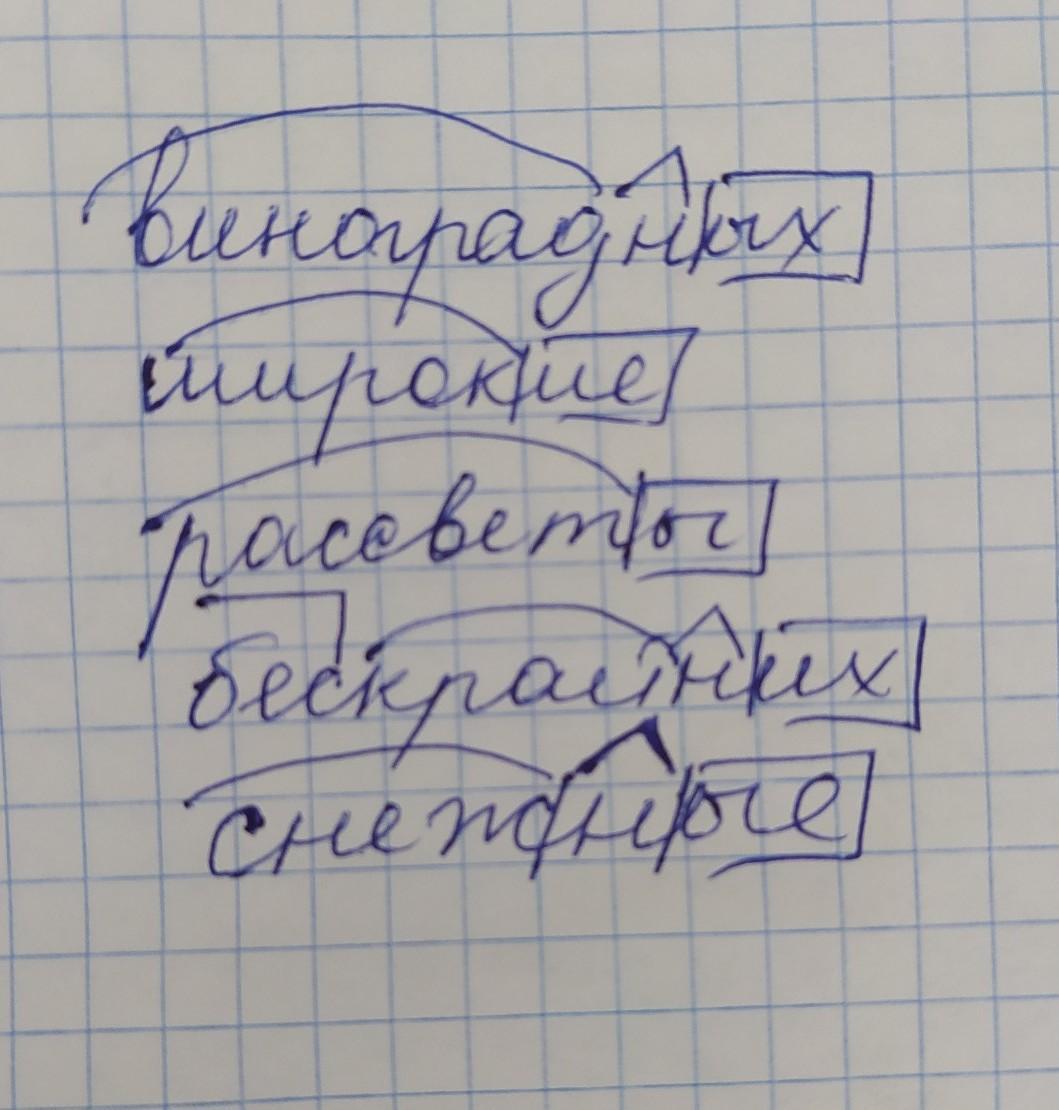 виноградных
широкие
рассветы
бескрайних
снежные